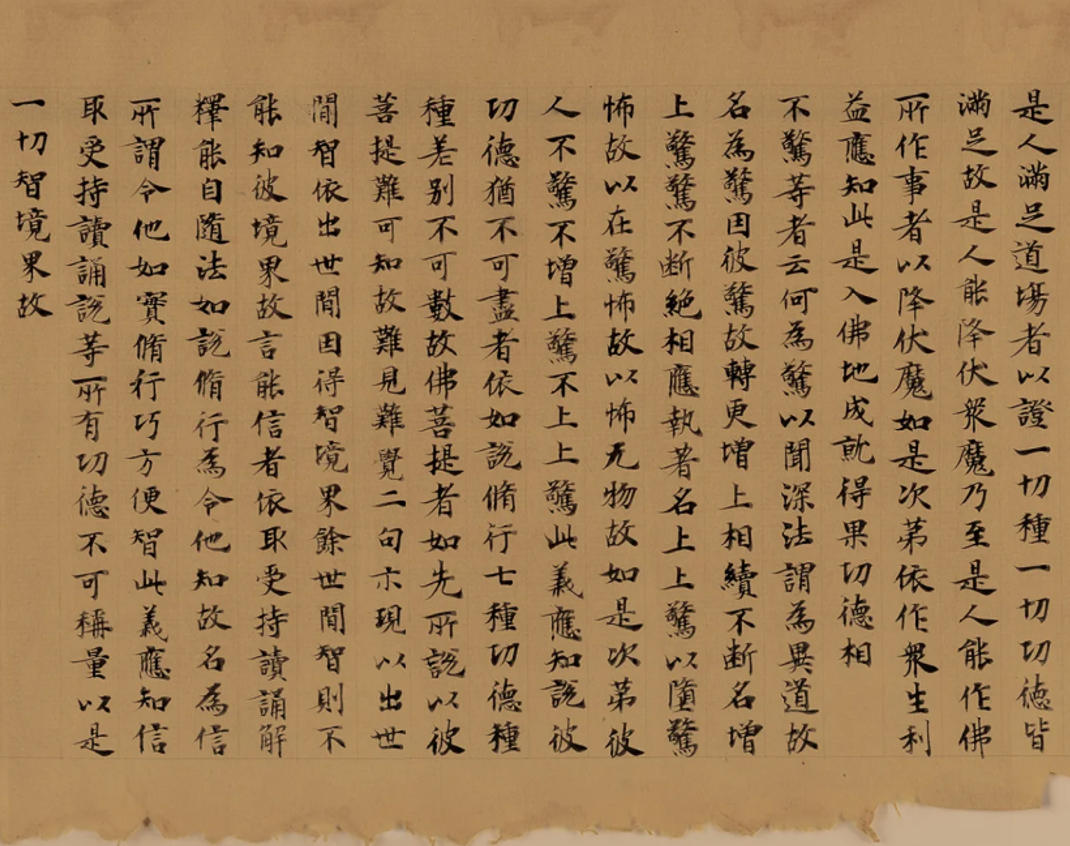 是人滿足道場者以證一切種一切切徳皆
滿足故是人能降伏衆魔乃至是人能作佛
所作事者以降伏魔如是次第依作衆生利
益應知此是入佛地成就得果切徳相
不驚等者云何為驚以聞深法謂為異道故
名為驚因彼驚故轉更增上相續不断名增
上驚驚不断絶相應執著名上上驚以墮驚
怖故以在驚怖故以怖无物故如是次第彼
人不驚不增上驚不上上驚此義應知說彼
切德猶不可盡者依如說脩行七種切德種
種差别不可數故佛菩提者如先所說以彼
菩提難可知故難見難覺二句示現以出世
間智依出世間因得智境界餘世間智則不
能知彼境界故言能信者依取受持讀誦解
釋能自隨法如說脩行為令他知故名為信
所謂令他如實脩行巧方便智此義應知信
取受持讀誦說等所有切徳不可稱量以是
一切智境界故